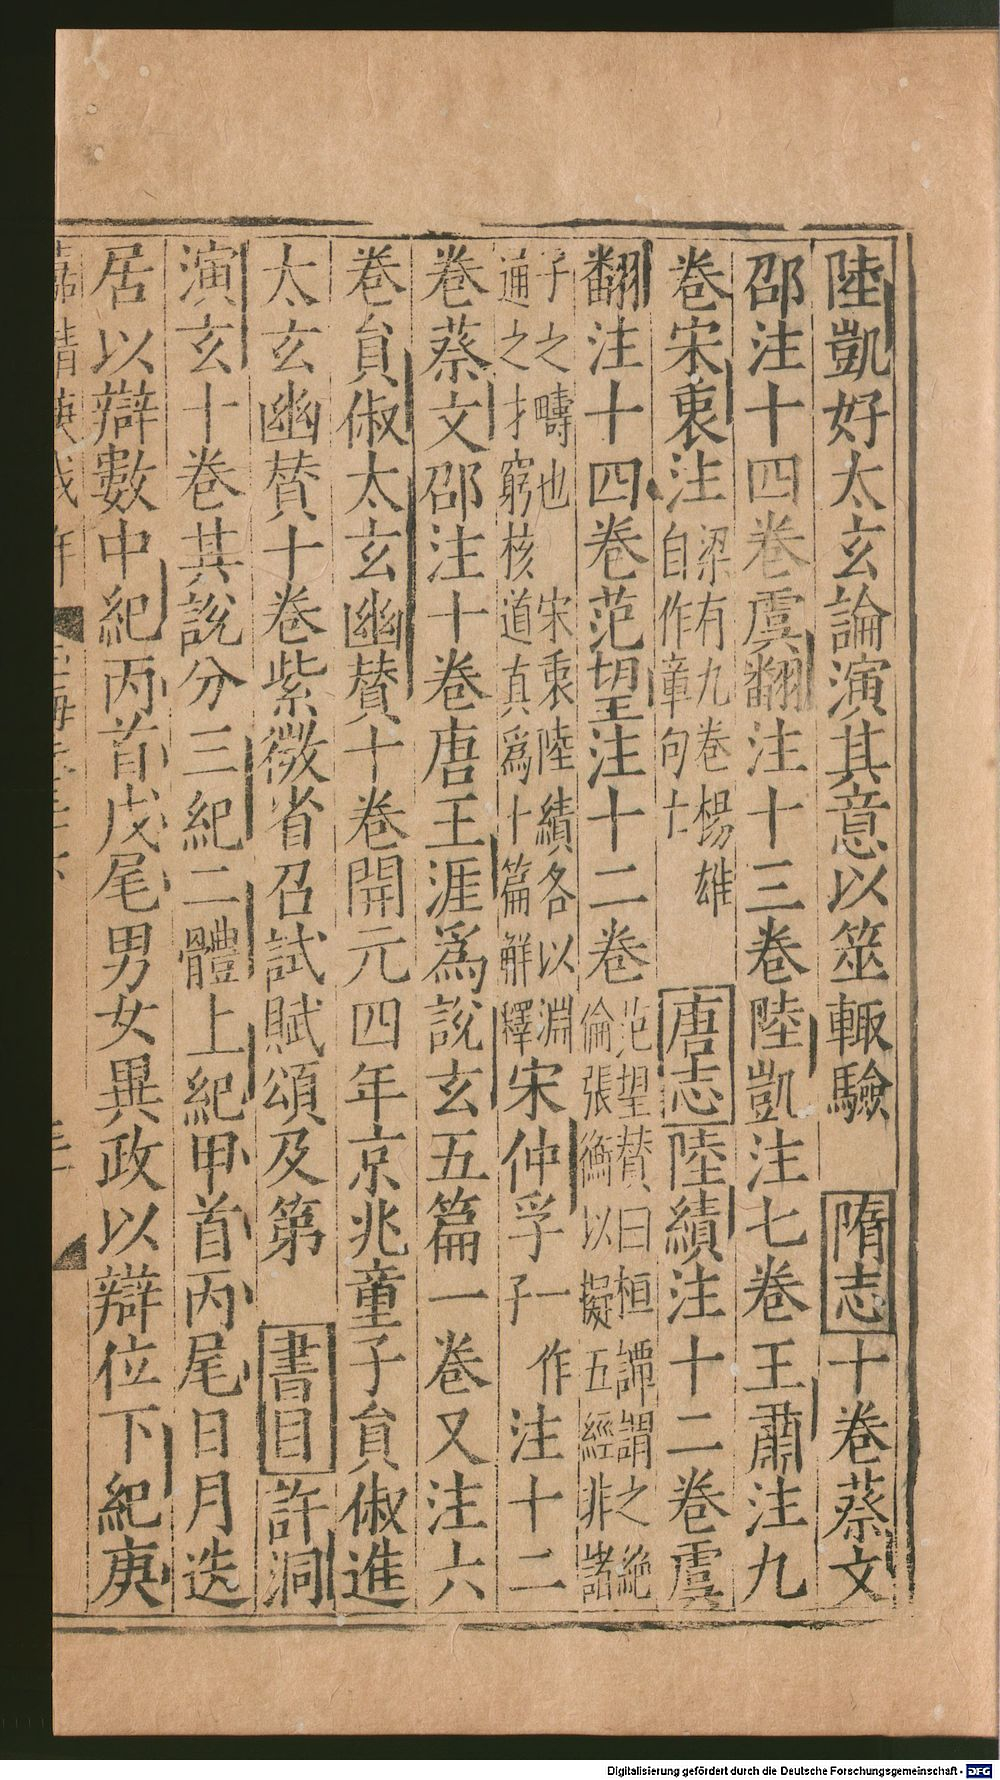 陸凱好太玄論演其意以筮輙驗　隋志十卷蔡文
邵注十四卷虞翻注十三卷陸凱注七卷王肅注九
卷宋衷注梁有九卷楊雄自作章句亡　唐志陸績注十二卷虞
翻注十四卷范望注十二卷范望賛曰桓譚謂之絶倫張衡以擬五經非諸
子之疇也　宋衷陸績各以淵通之才窮核道真爲十篇解釋宋仲孚一作子注十二
卷蔡文邵注十卷唐王涯爲說玄五篇一卷又注六
卷貟俶太玄幽賛十卷開元四年京兆童子貟俶進
太玄幽賛十卷紫微省召試賦頌及第　書目許洞
演玄十卷其說分三紀二體上紀甲首丙尾日月迭
居以辯數中紀丙首戊尾男女異政以辯位下紀庚
Digitalisierung gefördert durch die Deutsche Forschungsgemeinschaft - DFG